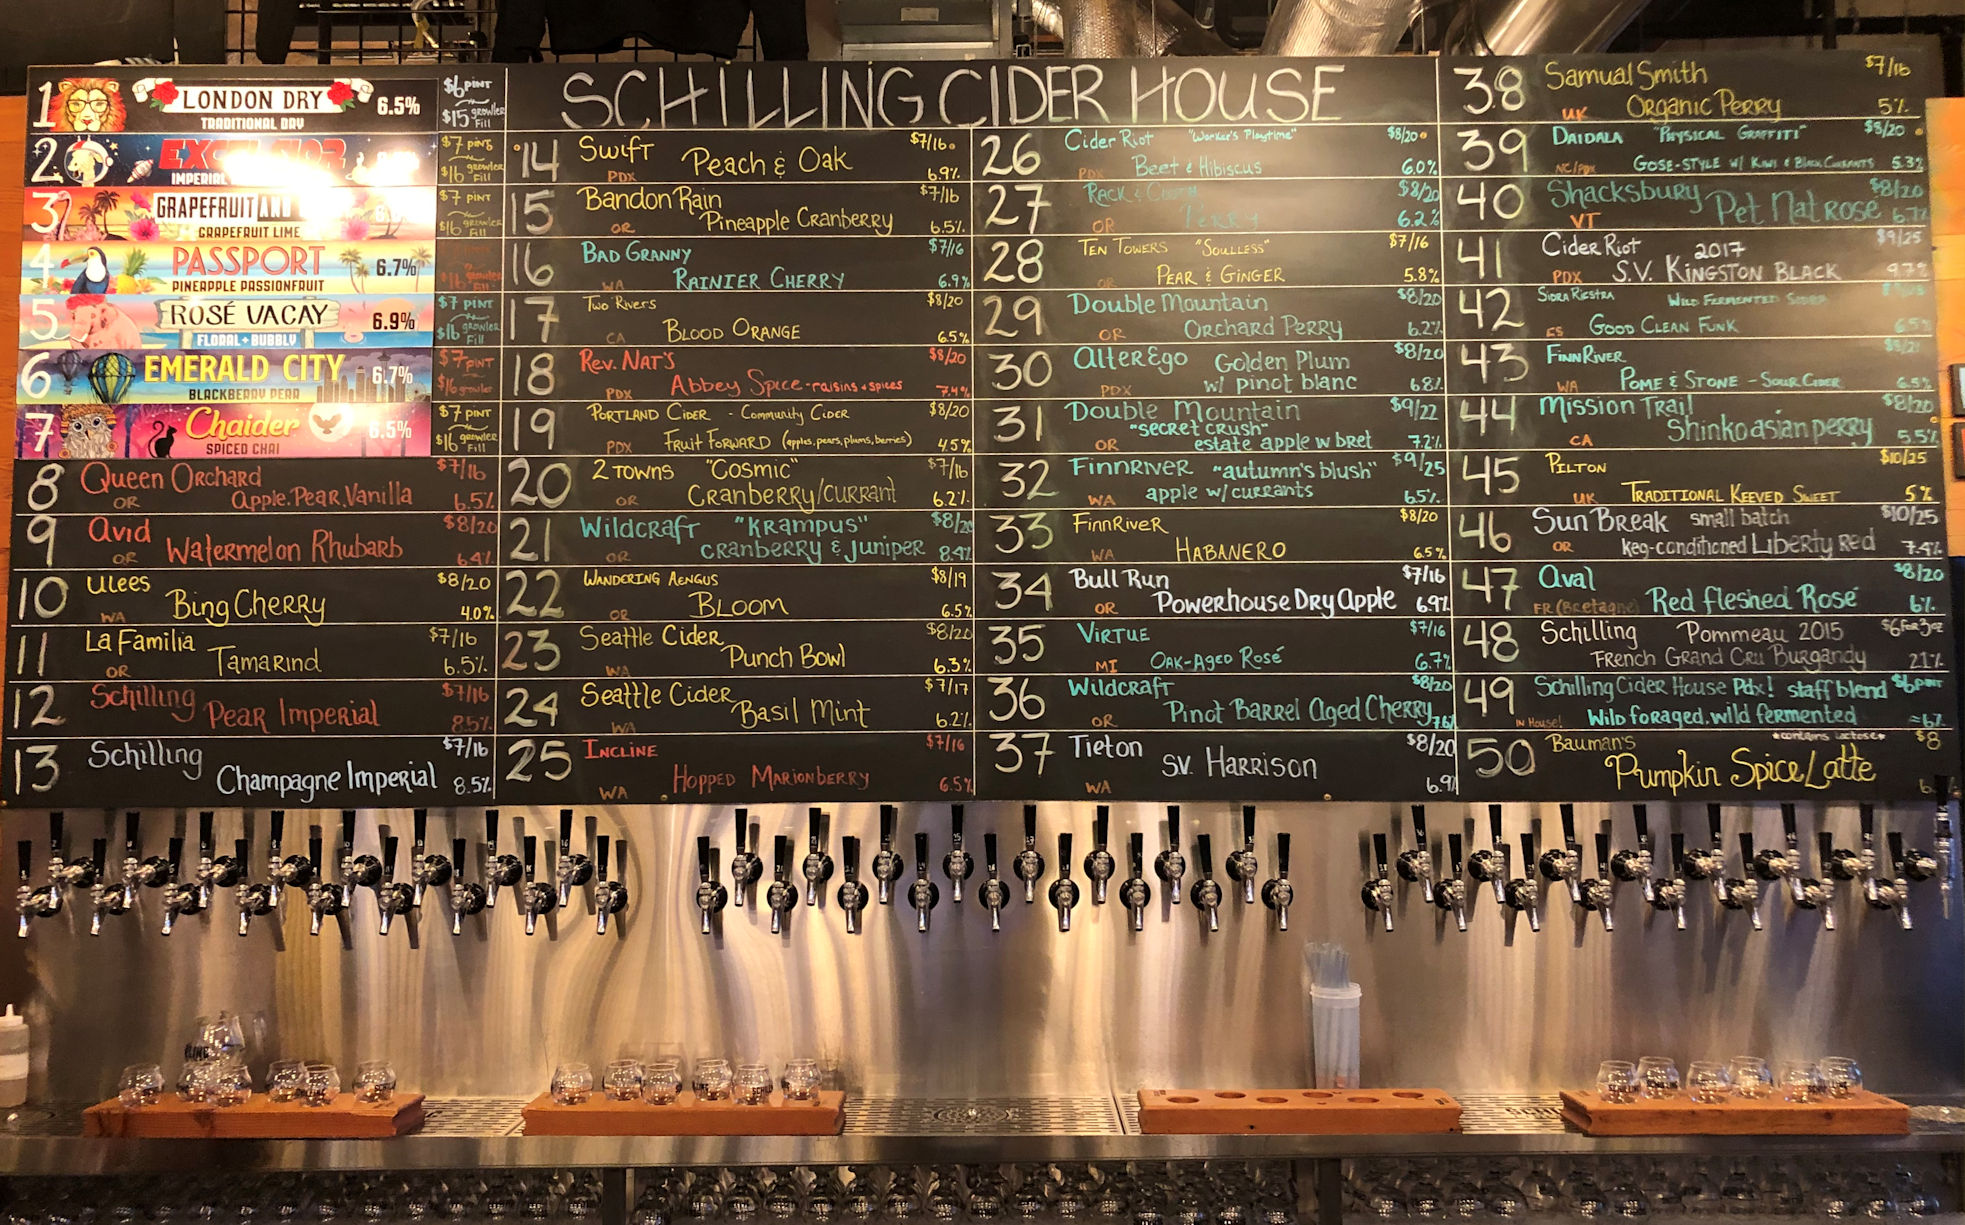 SCHILLING CIDER HOUSE
1 LONDON DRY 6.5% $6 PINT
TRADITIONAL DRY $15 growler Fill
2 $7 PINT
IMPERIAL $16 growler Fill
3 GRAPEFRUIT AND $7 PINT
GRAPEFRUIT LIME $16 growler Fill
4 PASSPORT 6.7%
PINEAPPLE PASSIONFRUIT $16 growler Fill
5 ROSÉ VACAY 6.9% $7 PINT
FLORAL + BUBBLY $16 growler Fill
6 EMERALD CITY 6.7% $7 PINT
BLACKBERRY PEAR $16 growler
7 Chaider 6.5% $7 PINT
SPICED CHAI $16 growler Fill
8 Queen Orchard $7/16
OR Apple.Pear.Vanilla 6.5%
9 Avid $8/20
OR Watermelon Rhubarb 6.4%
10 Ulees $8/20
WA Bing Cherry 4.0%
11 La Familia $7/16
OR Tamarind 6.5%
12 Schilling $7/16
Pear Imperial 8.5%
13 Schilling $7/16
Champagne Imperial 8.5%
14 Swift $7/16
PDX Peach & Oak 6.9%
15 Bandon Rain $7/16
OR Pineapple Cranberry 6.5%
16 Bad Granny $7/16
WA Rainier Cherry 6.9%
17 Two Rivers $8/20
CA Blood Orange 6.5%
18 Rev. Nat's $8/20
PDX Abbey Spice - raisins + spices 7.4%
19 Portland Cider - Community Cider $8/20
PDX Fruit Forward (apples, pears, plums, berries) 4.5%
20 2 Towns "Cosmic" $7/16
OR Cranberry/currant 6.2%
21 Wildcraft "Krampus" $8/20
OR cranberry & juniper 8.4%
22 Wandering Aengus $8/19
OR Bloom 6.5%
23 Seattle Cider $8/20
WA Punch Bowl 6.3%
24 Seattle Cider $7/17
WA Basil Mint 6.2%
25 Incline $7/16
WA Hopped Marionberry 6.5%
26 Cider Riot "Worker's Playtime" $8/20
PDX Beet & Hibiscus 6.0%
27 Rack & $8/20
OR Perry 6.2%
28 Ten Towers "Soulless" $7/16
OR Pear & Ginger 5.8%
29 Double Mountain $8/20
OR Orchard Perry 6.2%
30 AlterEgo Golden Plum $8/20
PDX w/ pinot blanc 6.8%
31 Double Mountain $9/22
"secret crush"
OR estate apple w bret 7.2%
32 Finnriver "autumn's blush" $9/25
WA apple w/ currants 6.5%
33 FinnRiver $8/20
WA Habanero 6.5%
34 Bull Run $7/16
OR Powerhouse Dry Apple 6.9%
35 Virtue $7/16
MI Oak-Aged Rosé 6.7%
36 Wildcraft $8/20
OR Pinot Barrel Aged Cherry 7.6%
37 Tieton $8/20
WA S.V. Harrison 6.9%
38 Samual Smith $7/16
UK Organic Perry 5%
39 Daidala "Physical Graffiti" $8/20
NC/PDX Gose-Style w/ Kiwi & Black Currants 5.3%
40 Shacksbury $8/20
VT Pet Nat rosé 6.7%
41 Cider Riot 2017 $9/25
PDX S.V. Kingston Black 9.7%
42 Sidra Riestra Wild Fermented Sidra
ES Good Clean Funk 6.5%
43 FinnRiver
WA Pome & Stone - Sour Cider 6.5%
44 Mission Trail $8/20
CA Shinko asian perry 5.5%
45 Pilton $10/25
UK Traditional Keeved Sweet 5%
46 Sun Break small batch $10/25
OR keg-conditioned Liberty red 7.4%
47 Aval $8/20
FR (Bretagne) Red fleshed Rosé 6%
48 Schilling Pommeau 2015 $6 for 3oz
French Grand Cru Burgandy 21%
49 Schilling Cider House Pdx! staff blend $6 PINT
IN House! Wild foraged. wild fermented ≈6%
50 Bauman's *contains lactose* $8
Pumpkin Spice Latte